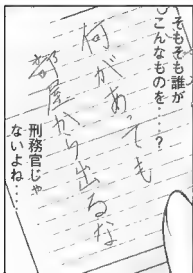 そもそも誰が
こんなものを‥‥?
何があっても
部屋から出るな
刑務官じゃ
ないよね‥‥